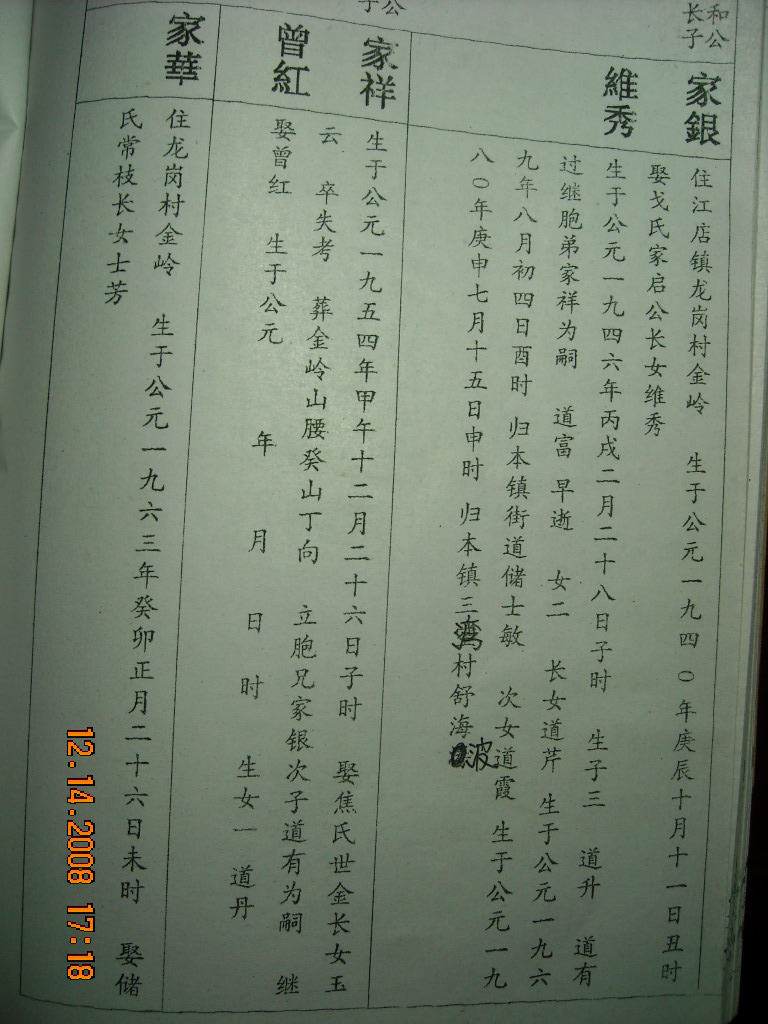 和公
长子
家銀
維秀
住江店镇龙岗村金岭 生于公元一九四〇年庚辰十月十一日丑时
娶戈氏家启公长女维秀
生于公元一九四六年丙戌二月二十八日子时 生子三 道升 道有
过继胞弟家祥为嗣 道富早逝 女二 长女道芹 生于公元一九六
九年八月初四日酉时 归本镇街道储士敏 次女道霞 生于公元一九
八〇年庚申七月十五日申时 归本镇三湾村舒海波
于公
家祥
曾紅
生于公元一九五四年甲午十二月二十六日子时 娶焦氏世金长女玉
云 卒失考 葬金岭山腰癸山丁向 立胞兄家银次子道有为嗣 继
娶曾红 生于公元 年 月 日 时 生女一 道丹
家華
住龙岗村金岭 生于公元一九六三年癸卯正月二十六日未时 娶储
氏常枝长女士芳
12.14.2008 17:18